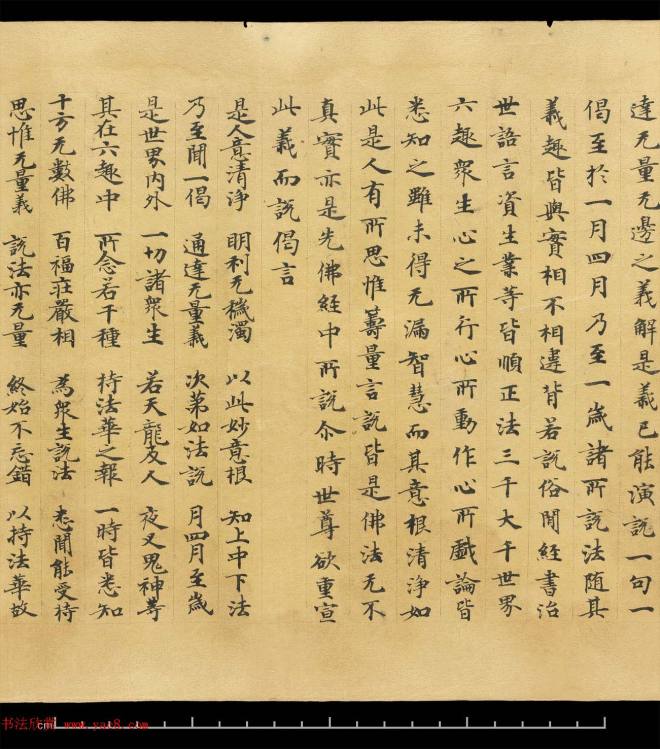 達无量无邊之義解是義已能演說一句一
偈至於一月四月乃至一歲諸所說法隨其
義趣皆與實相不相違背若說俗間經書治
世語言資生業等皆順正法三千大千世界
六趣眾生心之所行心所動作心所戲論皆
悉知之雖未得无漏智慧而其意根清淨如
此是人有所思惟籌量言說皆是佛法无不
真實亦是先佛經中所說尒時世尊欲重宣
此義而說偈言
是人意清淨 明利无穢濁 以此妙意根 知上中下法
乃至聞一偈 通達无量義 次第如法說 月四月至歲
是世界內外 一切諸眾生 若天龍及人 夜叉鬼神等
其在六趣中 所念若干種 持法華之報 一時皆悉知
十方无數佛 百福莊嚴相 為眾生說法 悉聞能受持
思惟无量義 說法亦无量 終始不忘錯 以持法華故
书法欣赏 www.yac8.com
cm